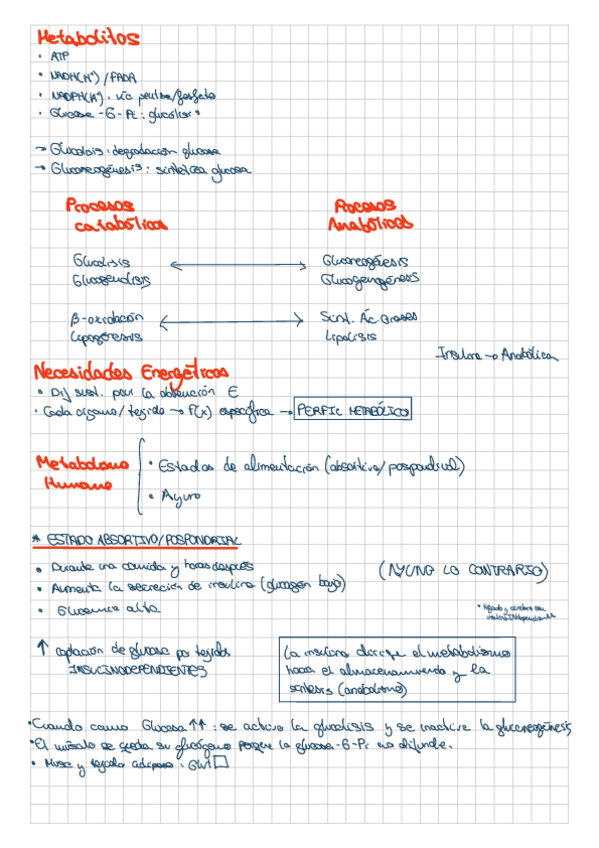 Metabolitos
· ATP
· NADH(H⁺)/FADA
· NADPH(H⁺): vía pentosa/fosfato
· Glucose-6-Pi: glucólisis
→ Glucolisis: degradación glucosa
→ Gluconeogénesis: sintetiza glucosa
Procesos catabólicos
Procesos Anabólicos
Glucolisis ↔ Gluconeogénesis
Glucogenolisis Glucogenogénesis
β-oxidación ↔ Sínt. Ác Grasos
Lipogénesis Lipolisis
Insulina → Anabólica
Necesidades Energéticas
· Dif sust. para la obtención E
· Cada órgano/tejido → f(x) específica → PERFIL METABÓLICO
Metabolismo Humano
· Estados de alimentación (absortivo/pospandrial)
· Ayuno
* ESTADO ABSORTIVO/POSPONDRIAL
· Durante una comida y horas después
(AYUNO LO CONTRARIO)
· Aumenta la secreción de insulina (glucagón bajo)
· Glucemia alta
* Hígado y cerebro son insulin INdependientes
↑ captación de glucosa por tejidos
INSULINODEPENDIENTES
La insulina dirige el metabolismo
hacia el almacenamiento y la
síntesis (anabolismo)
· Cuando como Glucosa ↑↑: se activa la glucolisis y se inactiva la gluconeogénesis
· El músculo se queda su glucógeno porque la glucosa-6-Pi no difunde.
· Musc y tejido adiposo: